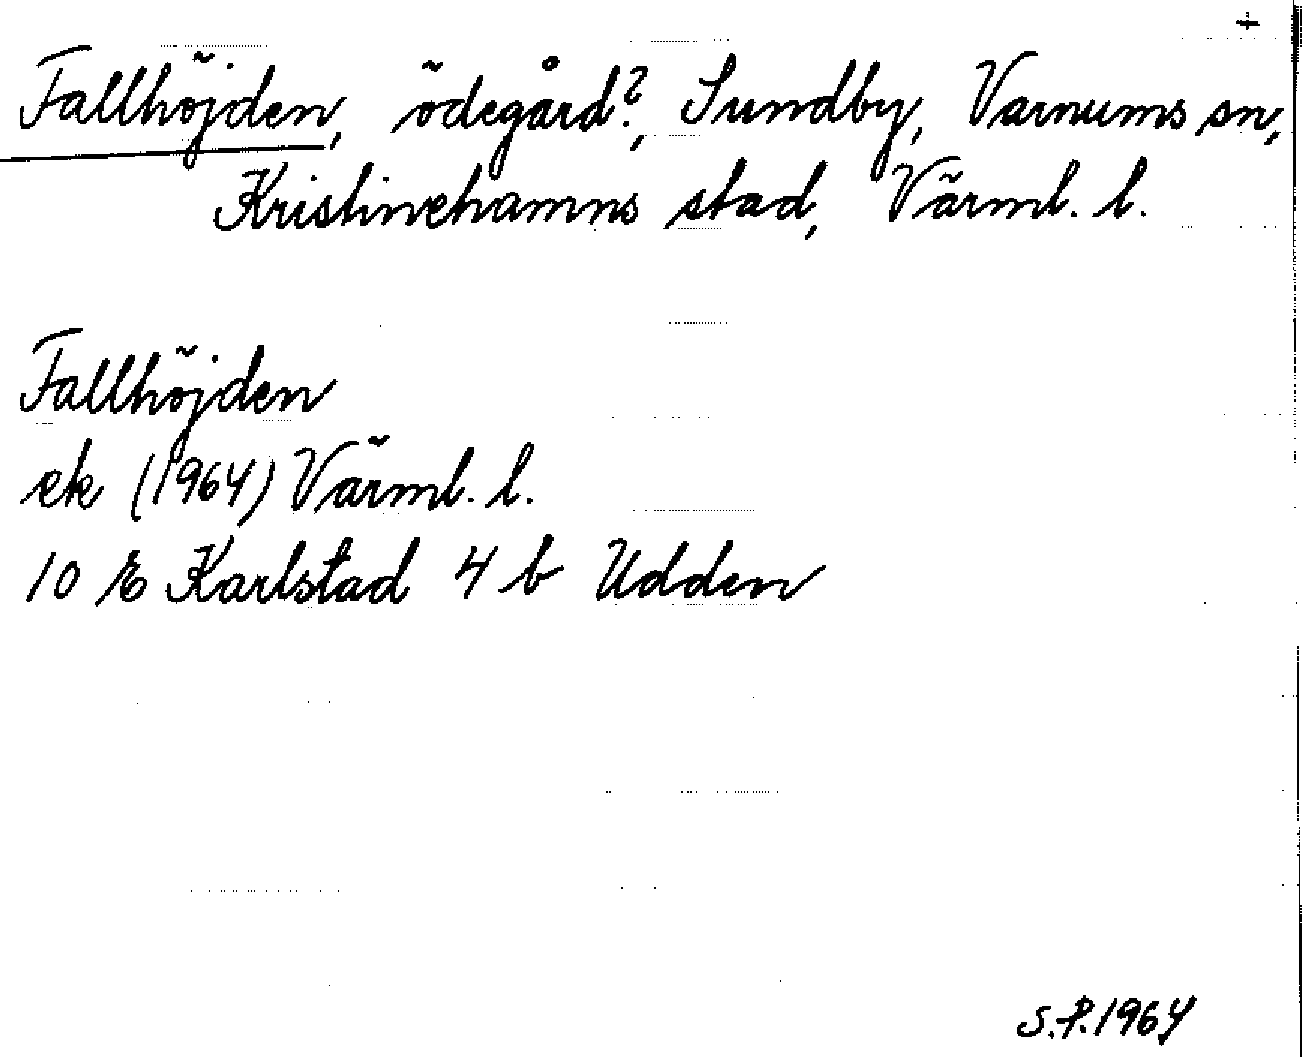 +
Fallhöjden, ödegård?, Sundby, Varnums sn,
Kristinehamns stad, Värml. l.
Fallhöjden
ek (1964) Värml. l.
10 E Karlstad 4 b Udden
S.P. 1964